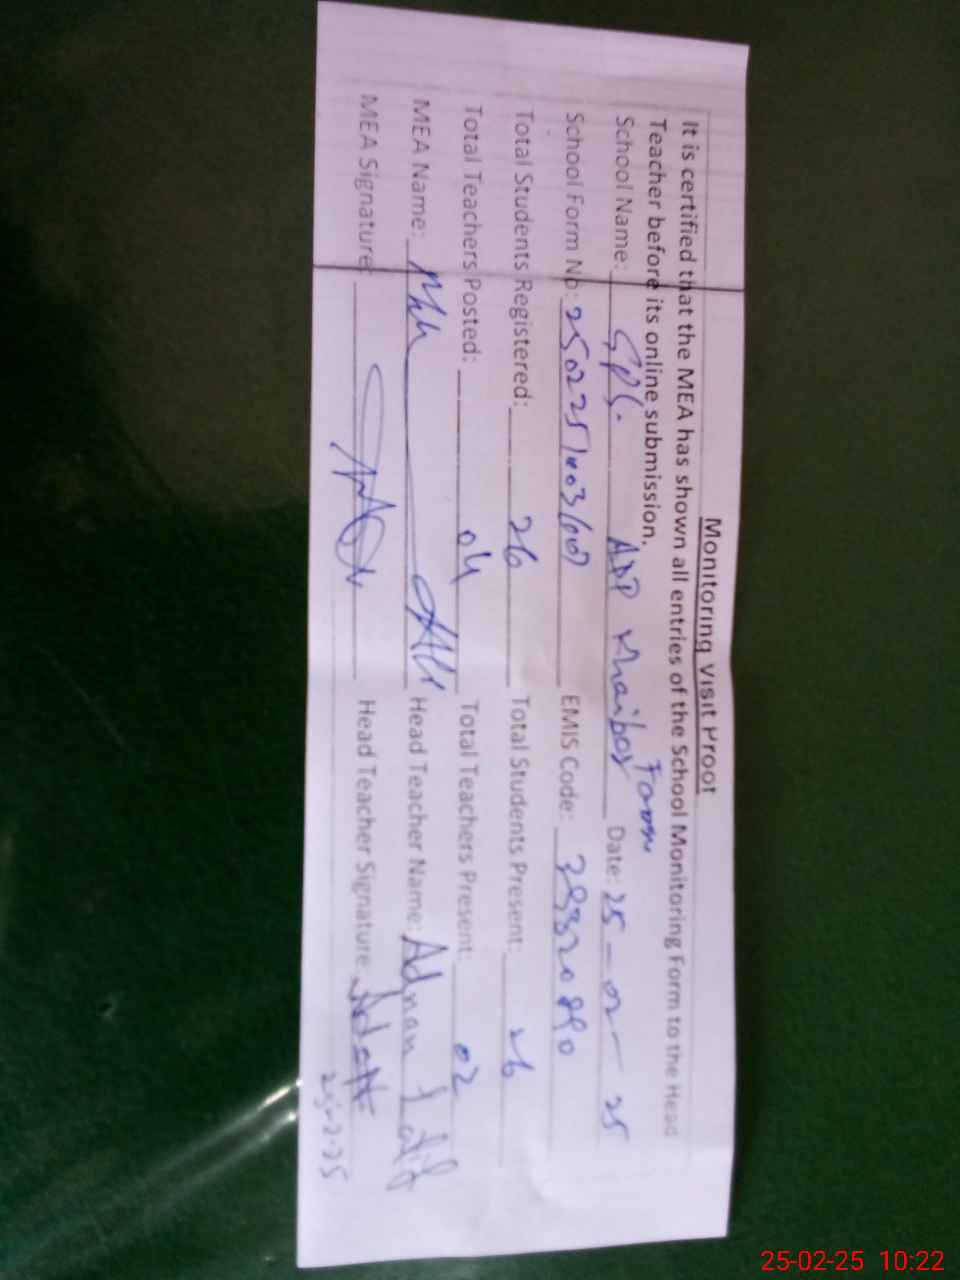 Monitoring Visit Proof
It is certified that the MEA has shown all entries of the School Monitoring Form to the Head
Teacher before its online submission.
School Name: GPS. ADP Khaibar Date: 25-02-25
School Form No: EMIS Code:
Total Students Registered: 26 Total Students Present: 26
Total Teachers Posted: 04 Total Teachers Present: 02
MEA Name: Head Teacher Name: Adnan Latif
MEA Signature: Head Teacher Signature:
25-2-25
25-02-25 10:22